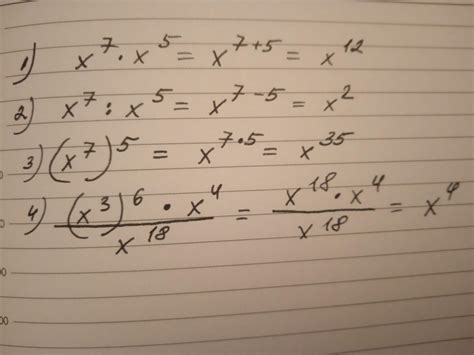 1) x⁷ · x⁵ = x⁷⁺⁵ = x¹²
2) x⁷ : x⁵ = x⁷⁻⁵ = x²
3) (x⁷)⁵ = x⁷·⁵ = x³⁵
4) (x³)⁶ · x⁴ / x¹⁸ = x¹⁸ · x⁴ / x¹⁸ = x⁴